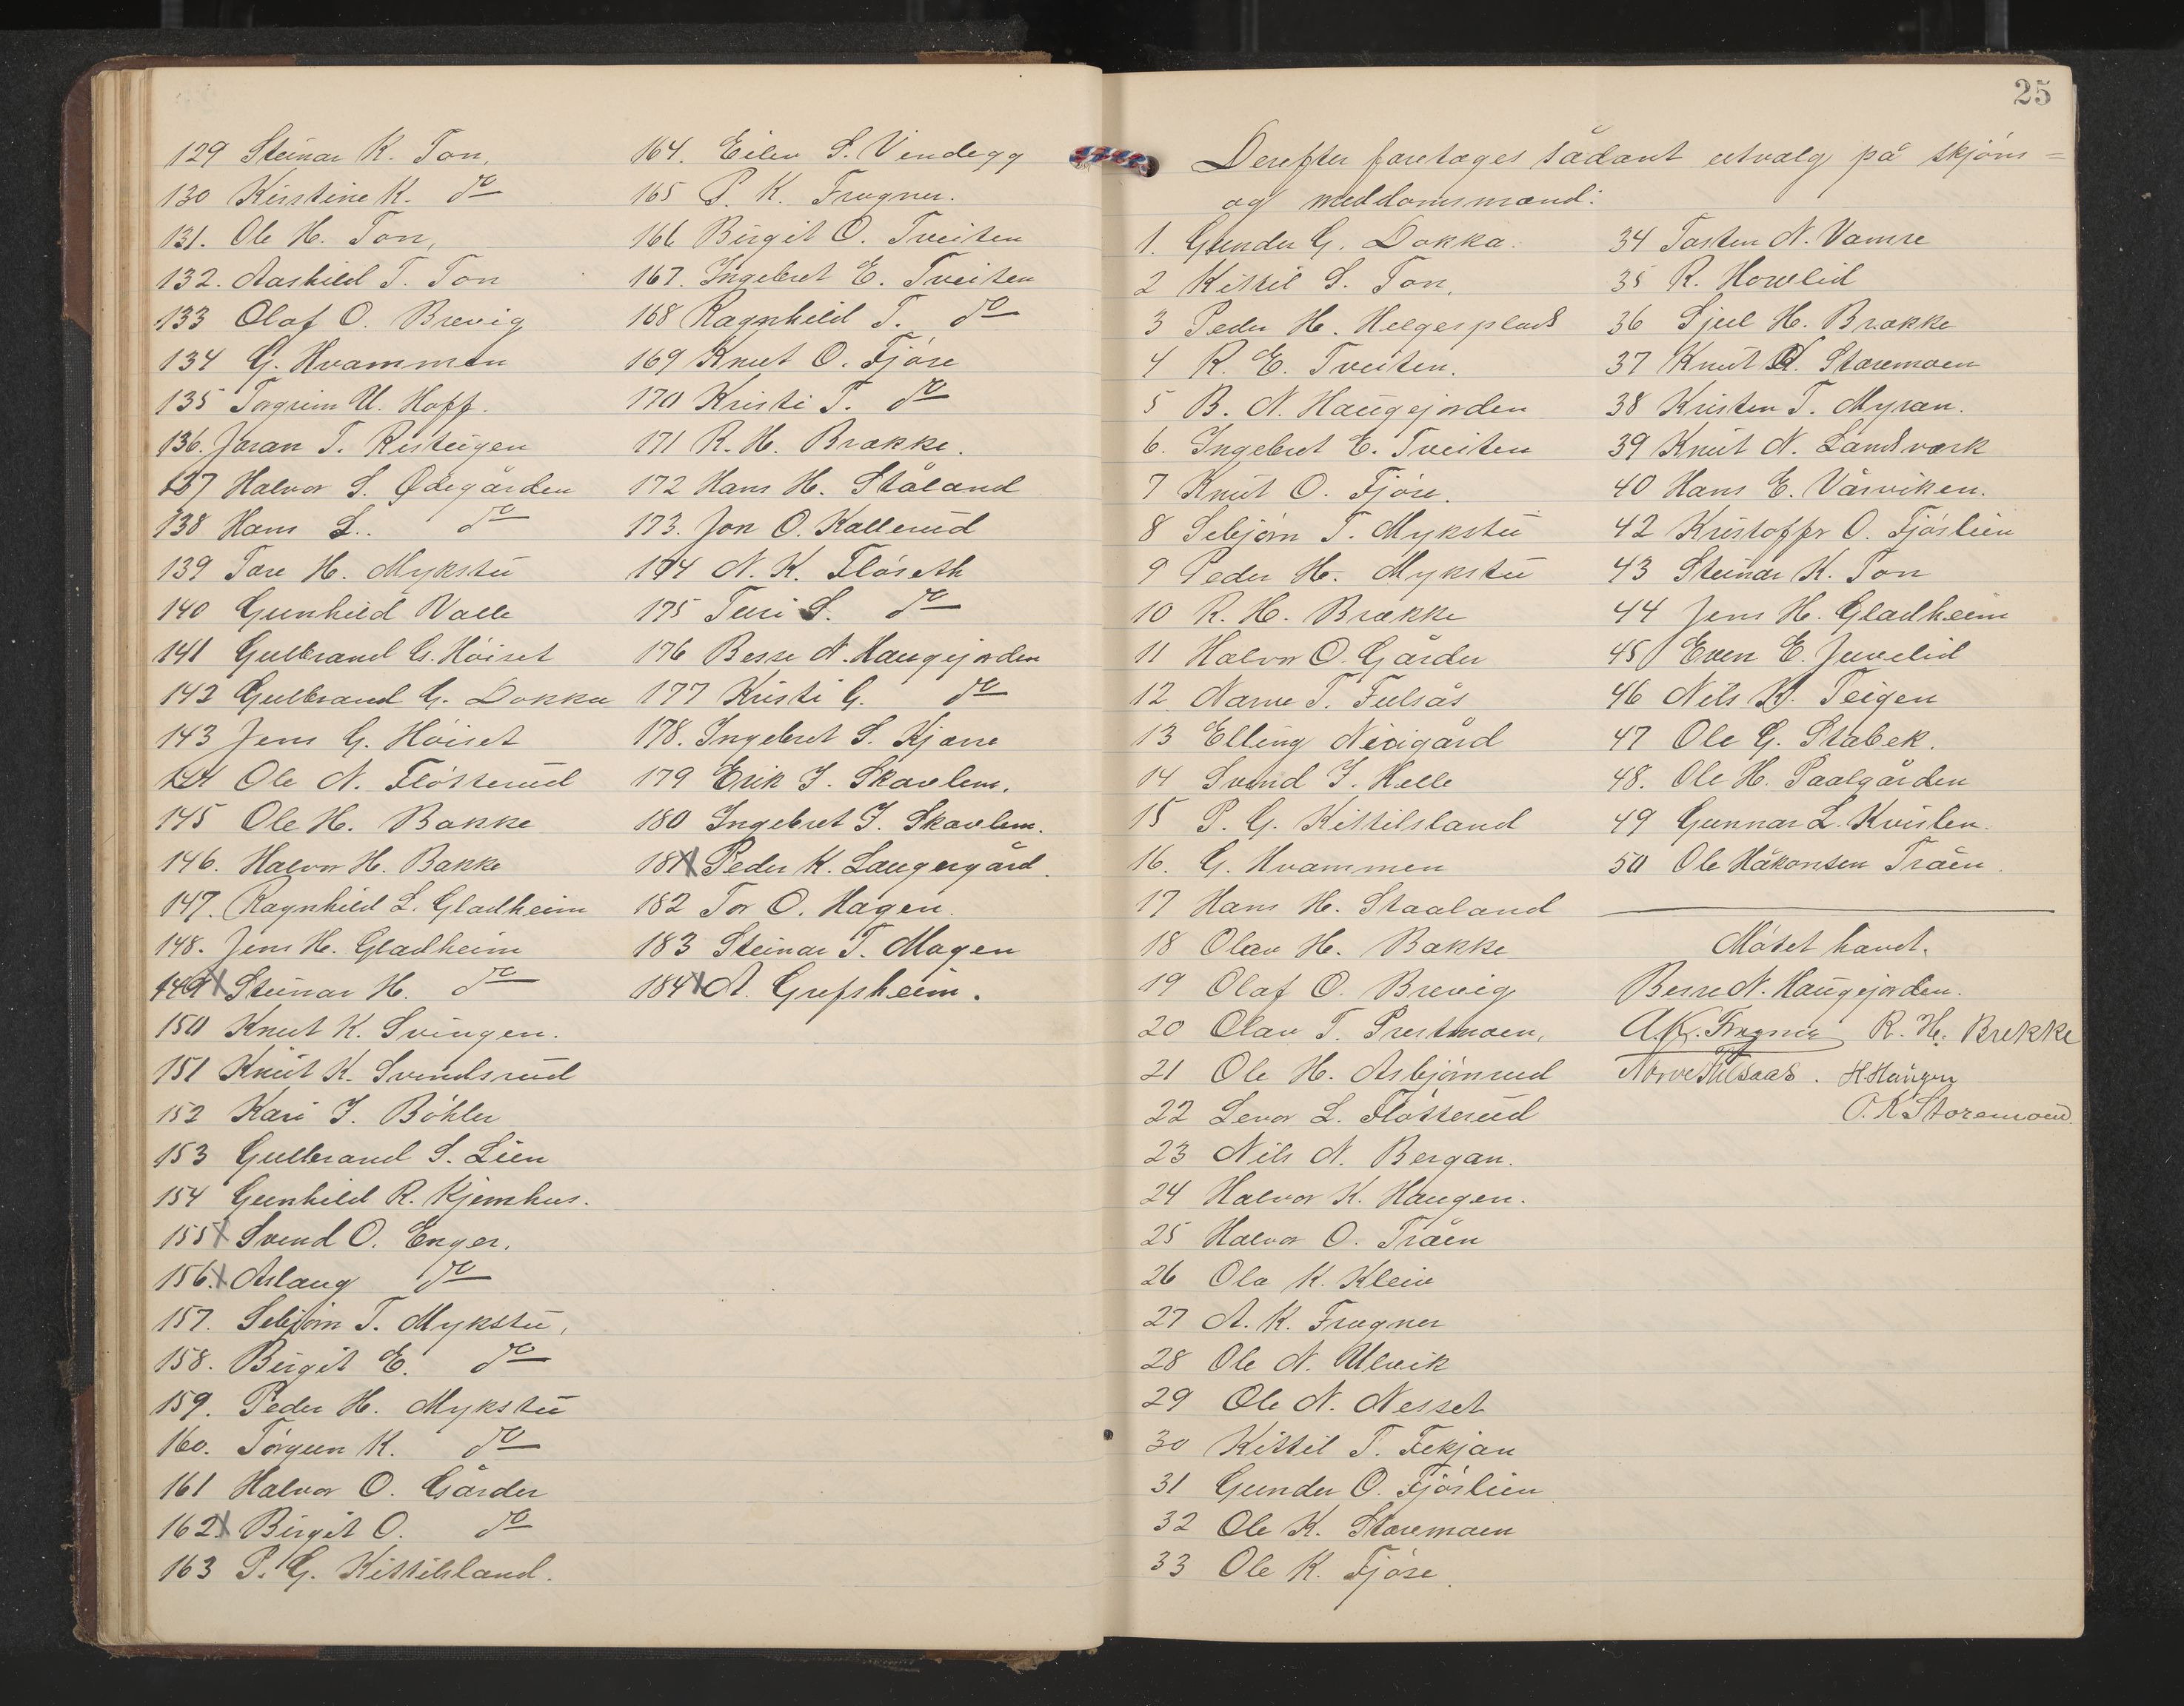 129 Steinar K. Ton,
130 Kirstine K. do
131. Ole H. Ton,
132. Aashild T. Ton
133 Olaf O. Brevig
134 G. Hvammen
135 Torgrim U. Hoff.
136. Joran T. Risteigen
137 Halvor S. Ødegården
138 Hans L. do
139 Tore H. Mykstu
140 Gunhild Valle
141 Gulbrand G. Höiset
142 Gulbrand G. Dokka
143 Jens G. Höiset
144 Ole N. Flötterud
145 Ole H. Bakke
146. Halvor H. Bakke
147. Ragnhild L. Gladheim
148. Jens H. Gladheim
149 X Steinar H. do
150 Knut K. Svingen.
151 Knut K. Svendsrud
152 Kari J. Böhler
153 Gulbrand S. Lien
154 Gunhild R. Kjemhus.
155 X Svend O. Enger.
156. X Aslaug do
157. Sebjörn T. Mykstu,
158. Birgit E. do
159. Peder H. Mykstu
160. Törgun K. do
161 Halvor O. Gårder
162 X Birgit O. do
163 P. G. Kittilsland.
164. Eilev S. Vindegg
165 P. K. Frogner.
166 Birgit O. Tveiten
167. Ingebret E. Tveiten
168 Ragnhild T. do
169 Knut O. Fjöse
170 Kristi T. do
171 R. H. Brække.
172 Hans H. Ståland
173. Jon O. Kallerud
174 N. K. Flöseth
175 Turi S. do
176 Besse N. Haugejorden
177 Kristi G. do
178. Ingebret S. Kjørre
179 Erik J. Skavlem.
180 Ingebret J. Skavlem.
181 X Peder K. Laugergård.
182 Tor O. Hagen.
183 Steinar T. Mogen
184 X A. Grefsheim.
25
Derefter foretages sådant utvalg på skjöns=
og meddomsmænd:
1. Gunder G. Dokka.
2 Kittil S. Ton,
3 Peder H. Helgesplads
4 R. E. Tveiten.
5 B. N. Haugejorden
6. Ingebret E. Tveiten
7 Knut O. Fjöse.
8 Sebjörn T. Mykstu
9 Peder H. Mykstu
10 R. H. Brække
11 Halvor O. Gårder
12 Narve T. Fulsås
13 Elling Nerigård
14 Svend J. Helle
15 P. G. Kittilsland
16. G. Hvammen
17 Hans H. Staaland
18 Olav H. Bakke
19 Olaf O. Brevig
20 Olav T. Prestmoen,
21 Ole H. Asbjörnrud
22 Levor L. Flötterud
23 Nils N. Bergan.
24 Halvor K. Haugen.
25 Halvor O. Tråen
26 Ola K. Kleiv
27 A. K. Frogner
28 Ole N. Ulvik
29 Ole N. Nesset
30 Kittil T. Fekjan
31 Gunder O. Fjöslien
32 Ole K. Storemoen
33 Ole K. Fjöse.
34 Tosten N. Vamre
35 R. Hovlid
36 Sjul H. Brække
37 Knut K. Storemoen
38 Kristen T. Myran.
39 Knut N. Landsverk
40 Hans E. Vårviken.
42 Kristoffer O. Fjöslien
43 Steinar K. Ton
44 Jens H. Gladheim
45 Even E. Juvelid
46 Nils K. Teigen
47 Ole G. Stabek.
48. Ole H. Paalgården
49 Gunnar L. Kvislen.
50 Ole Håkonsen Tråen.
Mötet hævet.
Besse N. Haugejorden.
A. K. Frogner R. H. Brekke
Narve Fulsaas. H Haugen
O. K Storemoen.